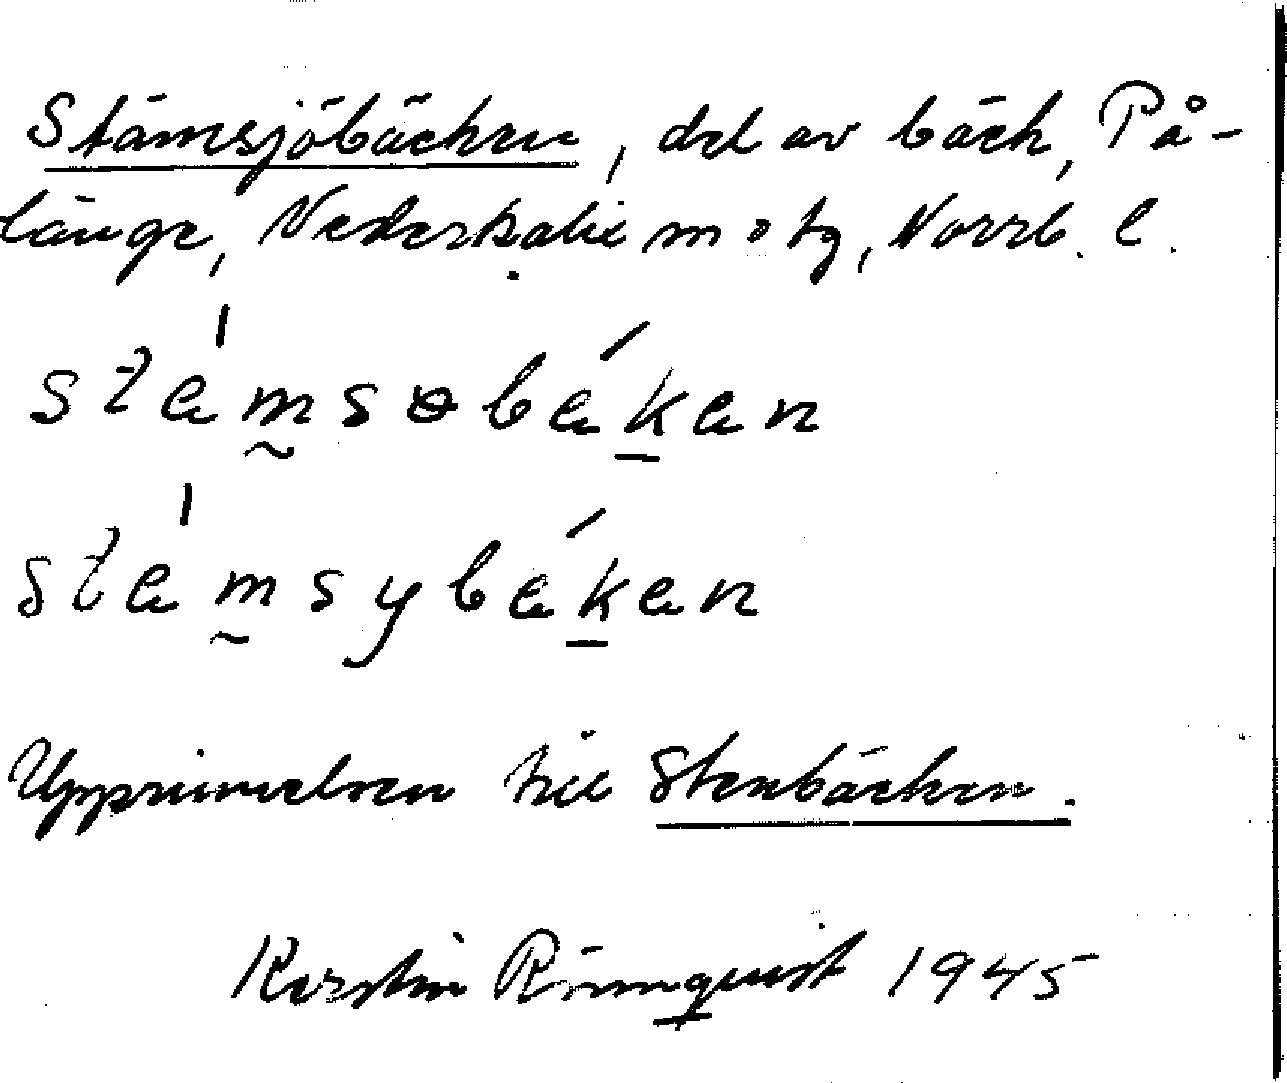 Stämsjöbäcken, del av bäck, På-
länge, Nederkalix m o tg, Norrb. l.
stémsɵbékan
stémsybékan
Upprinnelsen till Stenbäcken.
Kerstin Rönnquist 1945